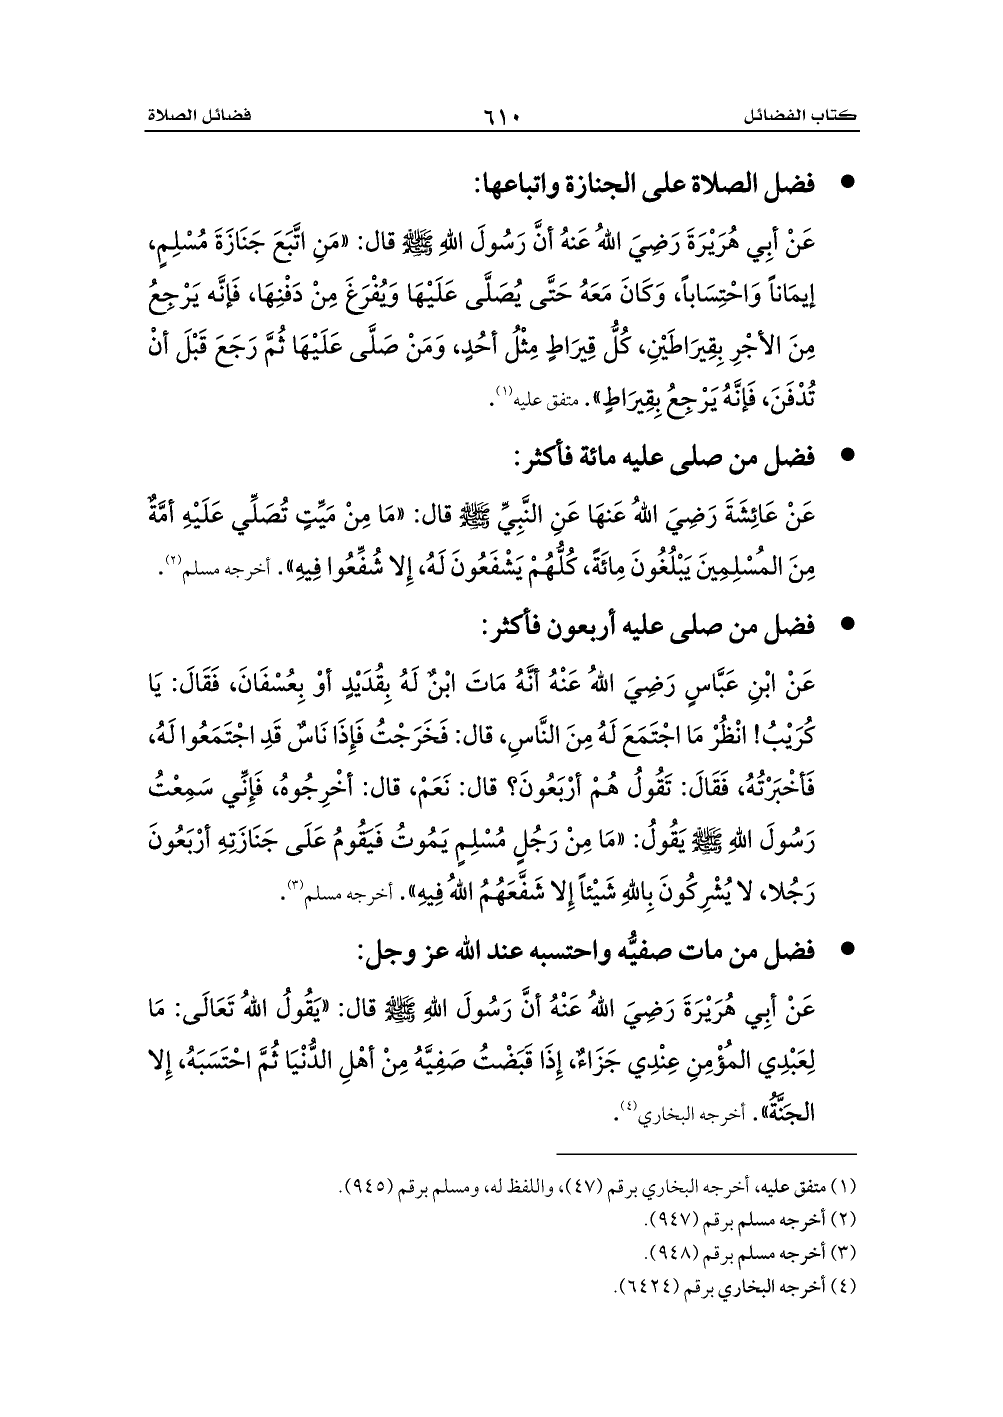 كتاب الفضائل ٦١٠ فضائل الصلاة
• فضل الصلاة على الجنازة واتباعها:
عَنْ أبِي هُرَيْرَةَ رَضِيَ اللهُ عَنهُ أنَّ رَسُولَ اللهِ ﷺ قال: «مَنِ اتَّبَعَ جَنَازَةَ مُسْلِمٍ،
إيمَاناً وَاحْتِسَاباً، وَكَانَ مَعَهُ حَتَّى يُصَلَّى عَلَيْهَا وَيُفْرَغَ مِنْ دَفْنِهَا، فَإنَّه يَرْجِعُ
مِنَ الأجْرِ بِقِيرَاطَيْنِ، كُلُّ قِيرَاطٍ مِثْلُ أحُدٍ، وَمَنْ صَلَّى عَلَيْهَا ثُمَّ رَجَعَ قَبْلَ أنْ
تُدْفَنَ، فَإنَّهُ يَرْجِعُ بِقِيرَاطٍ». متفق عليه(١).
• فضل من صلى عليه مائة فأكثر:
عَنْ عَائِشَةَ رَضِيَ اللهُ عَنهَا عَنِ النَّبِيِّ ﷺ قال: «مَا مِنْ مَيِّتٍ تُصَلِّي عَلَيْهِ أمَّةٌ
مِنَ المُسْلِمِينَ يَبْلُغُونَ مِائَةً، كُلُّهُمْ يَشْفَعُونَ لَهُ، إلا شُفِّعُوا فِيهِ». أخرجه مسلم(٢).
• فضل من صلى عليه أربعون فأكثر:
عَنْ ابْنِ عَبَّاسٍ رَضِيَ اللهُ عَنْهُ أنَّهُ مَاتَ ابْنٌ لَهُ بِقُدَيْدٍ أوْ بِعُسْفَانَ، فَقَالَ: يَا
كُرَيْبُ! انْظُرْ مَا اجْتَمَعَ لَهُ مِنَ النَّاسِ، قال: فَخَرَجْتُ فَإذَا نَاسٌ قَدِ اجْتَمَعُوا لَهُ،
فَأخْبَرْتُهُ، فَقَالَ: تَقُولُ هُمْ أرْبَعُونَ؟ قال: نَعَمْ، قال: أخْرِجُوهُ، فَإنِّي سَمِعْتُ
رَسُولَ اللهِ ﷺ يَقُولُ: «مَا مِنْ رَجُلٍ مُسْلِمٍ يَمُوتُ فَيَقُومُ عَلَى جَنَازَتِهِ أرْبَعُونَ
رَجُلا، لا يُشْرِكُونَ بِاللهِ شَيْئاً إلا شَفَّعَهُمُ اللهُ فِيهِ». أخرجه مسلم(٣).
• فضل من مات صفيُّه واحتسبه عند الله عز وجل:
عَنْ أبِي هُرَيْرَةَ رَضِيَ اللهُ عَنْهُ أنَّ رَسُولَ اللهِ ﷺ قال: «يَقُولُ اللهُ تَعَالَى: مَا
لِعَبْدِي المُؤْمِنِ عِنْدِي جَزَاءٌ، إذَا قَبَضْتُ صَفِيَّهُ مِنْ أهْلِ الدُّنْيَا ثُمَّ احْتَسَبَهُ، إلا
الجَنَّةُ». أخرجه البخاري(٤).
(١) متفق عليه، أخرجه البخاري برقم (٤٧)، واللفظ له، ومسلم برقم (٩٤٥).
(٢) أخرجه مسلم برقم (٩٤٧).
(٣) أخرجه مسلم برقم (٩٤٨).
(٤) أخرجه البخاري برقم (٦٤٢٤).